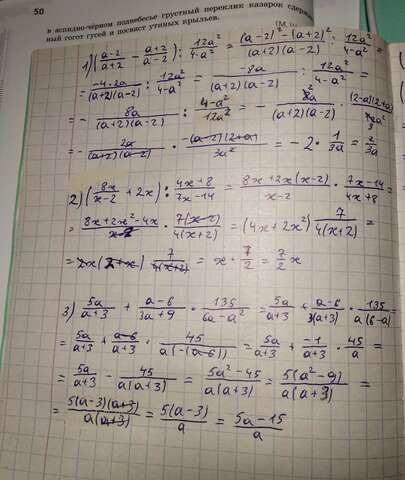 50
в аспидно-чёрном поднебесье грустный переклик казарок
ный гогот гусей и посвист утиных крыльев.
1) (a-2/a+2 - a+2/a-2) : 12a²/4-a² = (a-2)²-(a+2)²/(a+2)(a-2) : 12a²/4-a² =
= -4·2a/(a+2)(a-2) : 12a²/4-a² = -8a/(a+2)(a-2) : 12a²/4-a² =
= - 8a/(a+2)(a-2) : 4-a²/12a² = - 8a/(a+2)(a-2) · (2-a)(2+a)/12a²
= - 2a/(a+2)(a-2) · -(a-2)(2+a)/3a² = -2 · 1/3a = 2/3a
2) (8x/x-2 + 2x) : 4x+8/7x-14 = 8x+2x(x-2)/x-2 · 7x-14/4x+8 =
= 8x+2x²-4x/x-2 · 7(x-2)/4(x+2) = (4x+2x²) 7/4(x+2) =
= 2x(2+x) 7/4(x+2) = x · 7/2 = 7/2 x
3) 5a/a+3 + a-6/3a+9 · 135/6a-a² = 5a/a+3 + a-6/3(a+3) · 135/a(6-a) =
= 5a/a+3 + a-6/a+3 · 45/a(-(a-6)) = 5a/a+3 + -1/a+3 · 45/a =
= 5a/a+3 - 45/a(a+3) = 5a²-45/a(a+3) = 5(a²-9)/a(a+3) =
= 5(a-3)(a+3)/a(a+3) = 5(a-3)/a = 5a-15/a